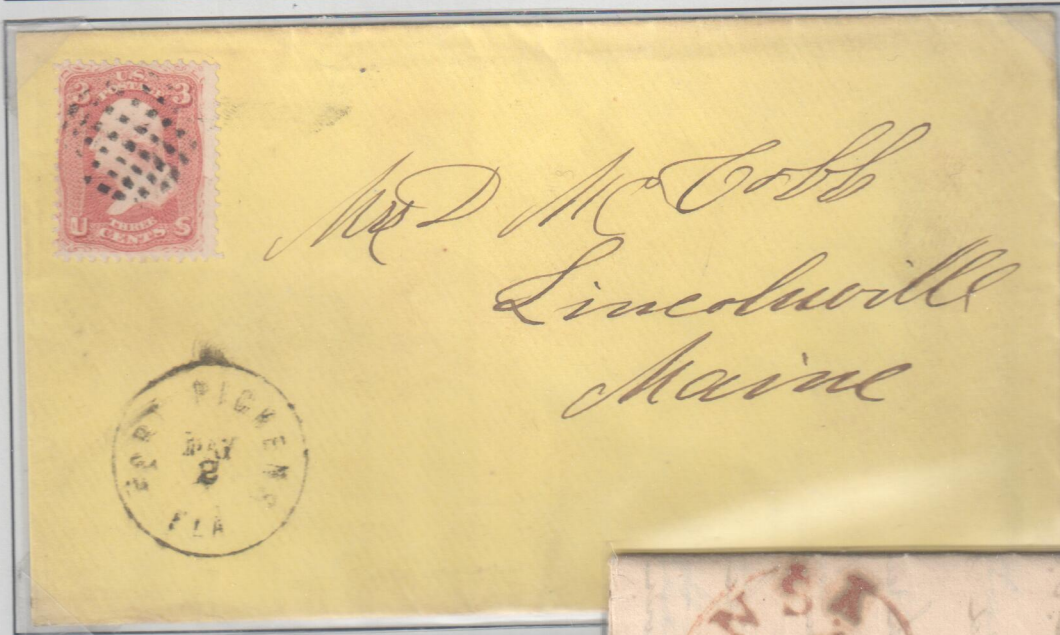 3 U.S. 3
POSTAGE
U THREE S
CENTS
Mrs D McCobb
Lincolnville
Maine
FORT PICKENS
MAY
2
FLA
NSK